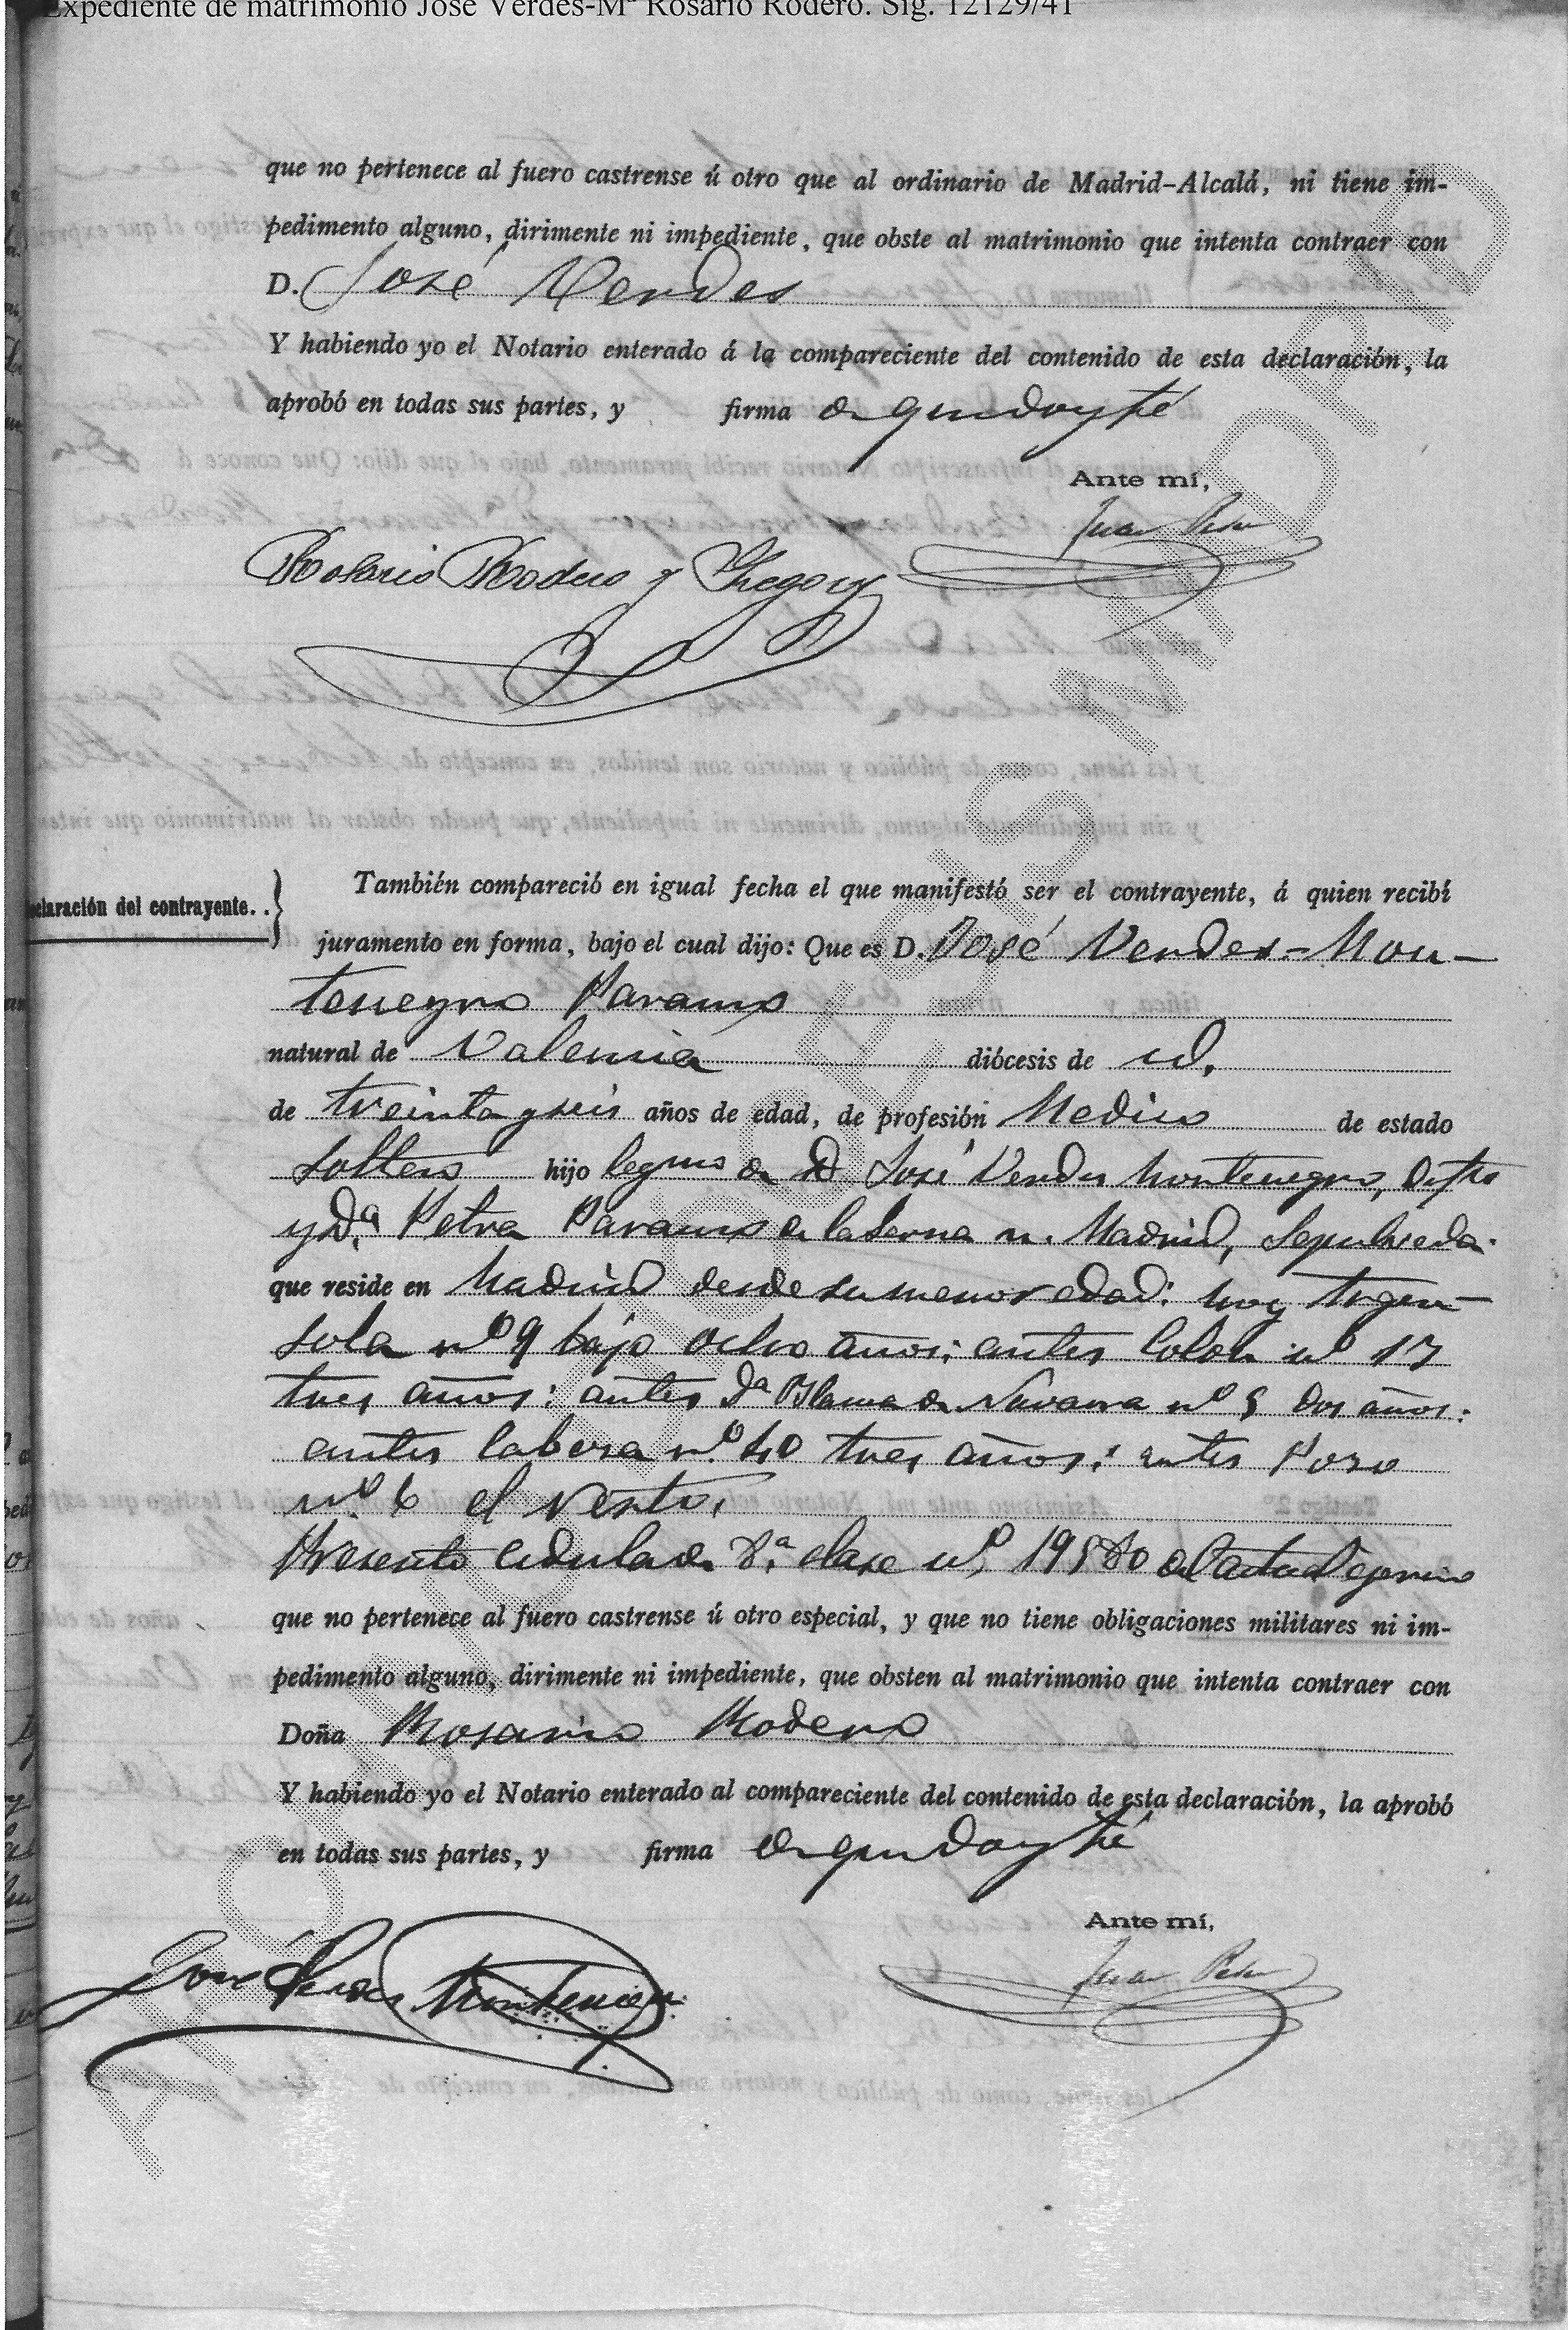 Expediente de matrimonio José Verdes-Mª Rosario Rodero. Sig. 12129/41
que no pertenece al fuero castrense ú otro que al ordinario de Madrid-Alcalá, ni tiene im-
pedimento alguno, dirimente ni impediente, que obste al matrimonio que intenta contraer con
D. José Verdes
Y habiendo yo el Notario enterado á la compareciente del contenido de esta declaración, la
aprobó en todas sus partes, y firma de que doy fé
Ante mí,
Juan
Rosario Rodero y
También compareció en igual fecha el que manifestó ser el contrayente, á quien recibí
claración del contrayente. .
juramento en forma, bajo el cual dijo: Que es D. José Verdes-Mon-
tenegro Paramo
natural de Valencia diócesis de id.
de treinta y seis años de edad, de profesión Medico de estado
soltero hijo legmo de D José Verdes Montenegro, Dfto
y Dª. Petra Paramo de la Serna n. Madrid, Sepulveda.
que reside en Madrid desde su menor edad: hoy Argen-
sola nº 9 bajo ocho años: antes Colon nº 17
tres años: antes Dª Blanca de Navarra nº 5 dos años:
antes Cabeza nº. 40 tres años: antes Pozo
nº. 6 el resto.
Presento cedula de 8.ª clase nº. 19580 del actual ejercicio
que no pertenece al fuero castrense ú otro especial, y que no tiene obligaciones militares ni im-
pedimento alguno, dirimente ni impediente, que obsten al matrimonio que intenta contraer con
Doña Rosario Rodero
Y habiendo yo el Notario enterado al compareciente del contenido de esta declaración, la aprobó
en todas sus partes, y firma de que doy fé
Ante mí,
José Verdes Montenegro
Juan